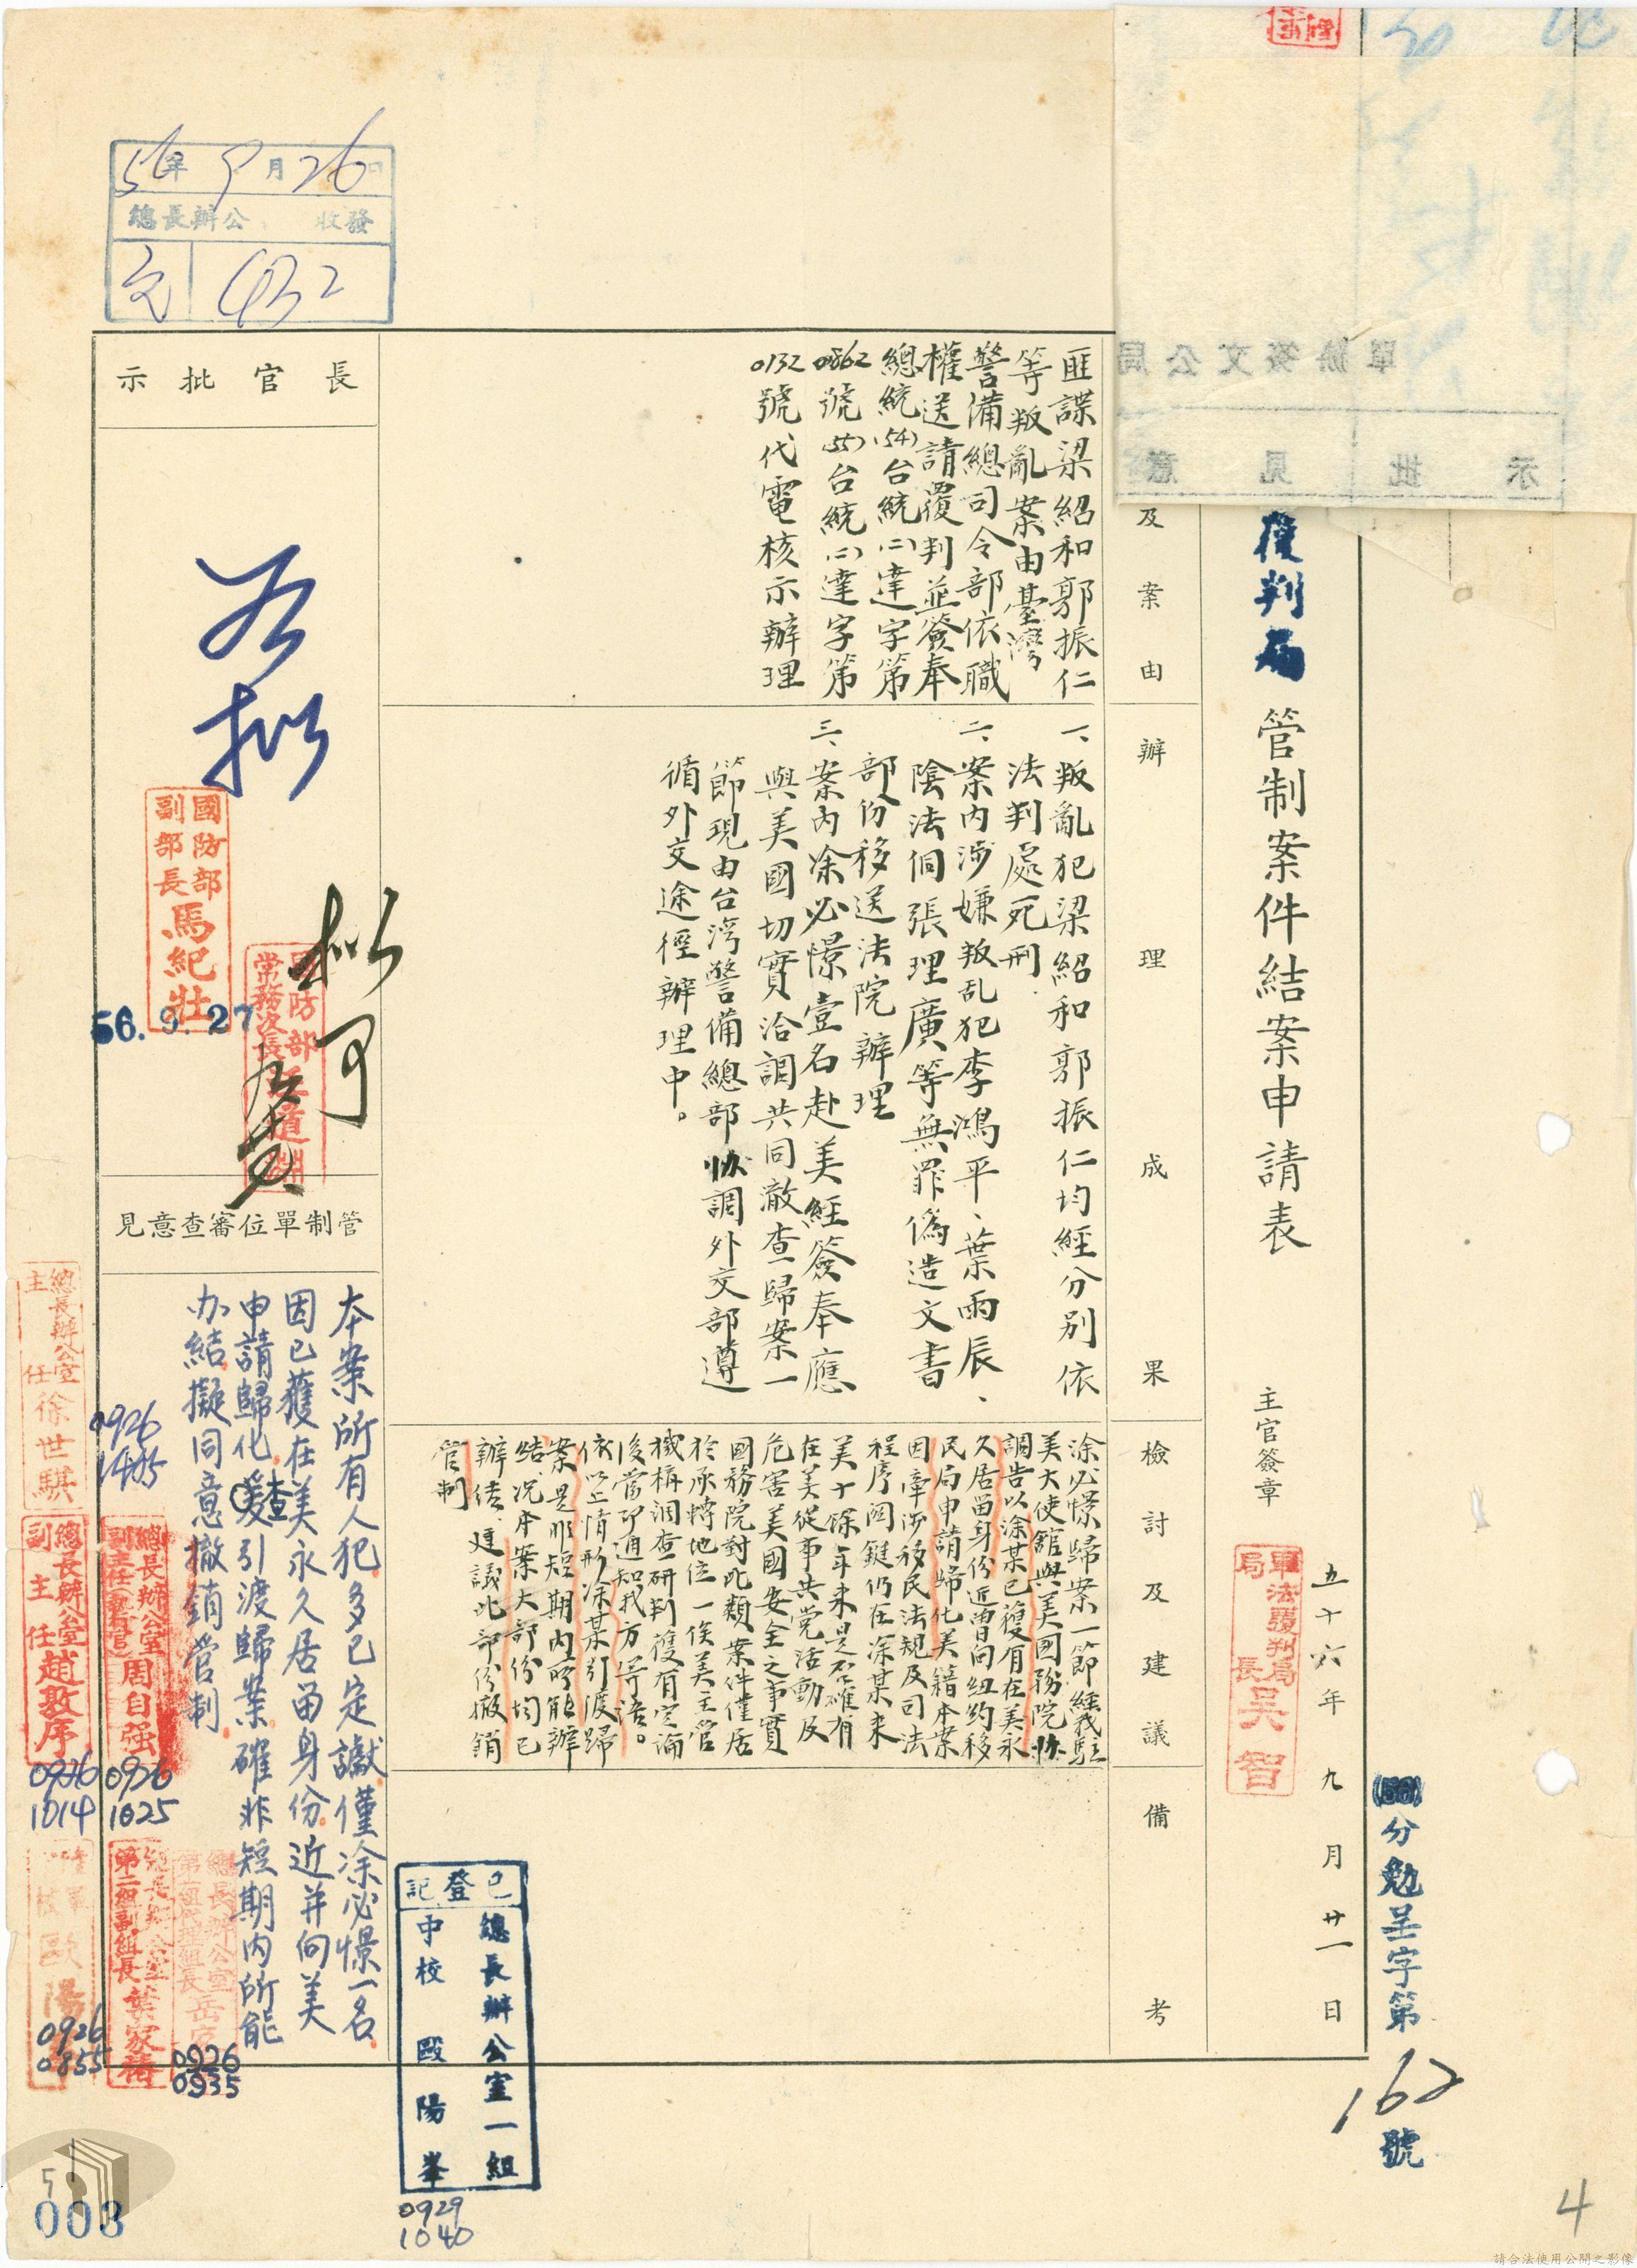 (56)分勉呈字第162號
復判局管制案件結案申請表
主官簽章
軍法覆判局
局長吳智
五十六年九月廿一日
及案由
匪諜梁紹和郭振仁
等叛亂案由臺灣
警備總司令部依職
權送請覆判並簽奉
總統(54)台統(二)達字第
0862號(55)台統(二)達字第
0132號代電核示辦理
辦理成果
一、叛亂犯梁紹和郭振仁均經分別依
法判處死刑.
二、案內涉嫌叛乱犯李鴻平、葉雨辰、
陰法侗張理廣等無罪偽造文書
部份移送法院辦理
三、案內凃必憬壹名赴美經簽奉應
與美國切實洽調共同澈查歸案一
節現由台湾警備總部協調外交部遵
循外交途徑辦理中。
檢討及建議
涂必憬歸案一節經我駐
美大使館與美國務院協
調告以涂某已獲有在美永
久居留身份近曾向紐約移
民局申請歸化美籍本案
因牽涉移民法規及司法
程序関鍵仍在涂某来
美十餘年来是否確有
在美從事共党活動及
危害美國安全之事實
國務院對此類案件僅居
於承轉地位一俟美主管
機構調查研判獲有定論
後當即通知我方等語。
依以上情形凃某引渡歸
案是非短期內所能辦
結、況本案大部份均已
辦結、建議此部份撤銷
管制
備考
長官批示
如擬
國防部副部長馬紀壯
56.9.27
擬可
管制單位審查意見
本案所有人犯多已定讞僅涂必憬一名
因已獲在美永久居留身份近并向美
申請歸化查引渡歸案確非短期內所能
办結擬同意撤銷管制
總長辦公室主任徐世騏
0926
1405
總長辦公室副主任趙敦序
0926
1014
總長辦公室
周自强
0926
1025
第二組副組長葉家禧
0926
0935
歐陽
0926
0855
已登記
總長辦公室一組
中校歐陽峯
0929
1040
56年9月26日
總長辦公 收發
文 432
單辦簽文公局
示批見意
51
003
4
請合法使用公開之影像